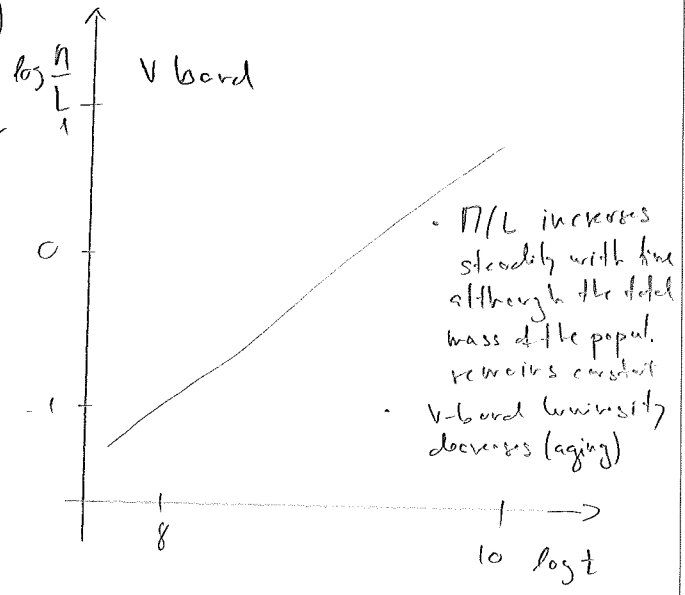 )
log M/L V band
1
0
-1
• M/L increases
steadily with time
although the total
mass of the popul.
remains constant
• V-band luminosity
decreases (aging)
8
10 log t